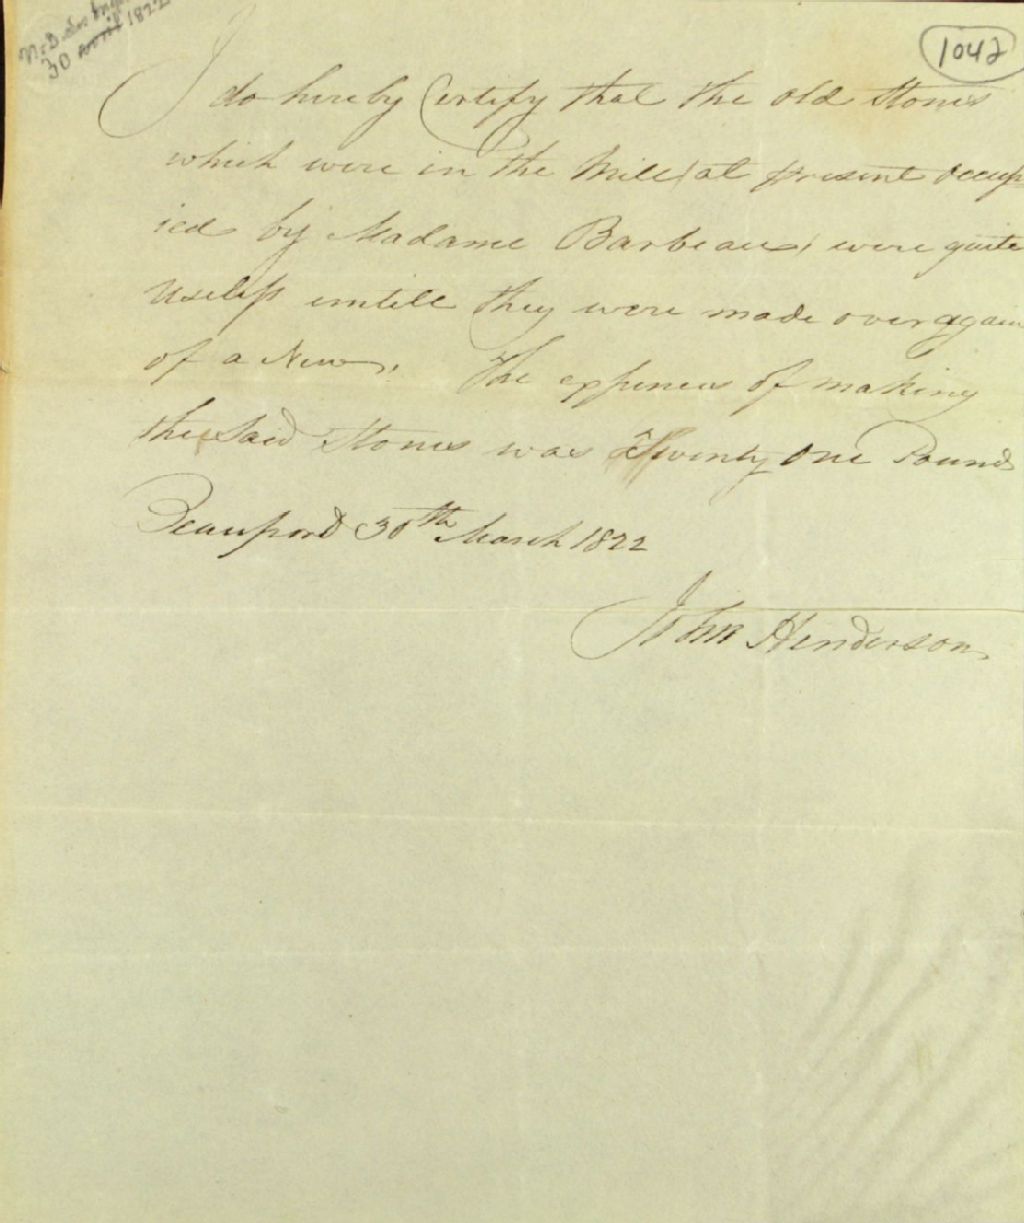 30 avril 1822
1042
I do hereby Certify that the old Stones
which were in the Mill (at present occup
ied by Madame Barbeau) were quite
Useless untill they were made over again
of a New. The expences of making
the Said Stones was Twenty One Pounds
Beauport 30th March 1822
John Henderson